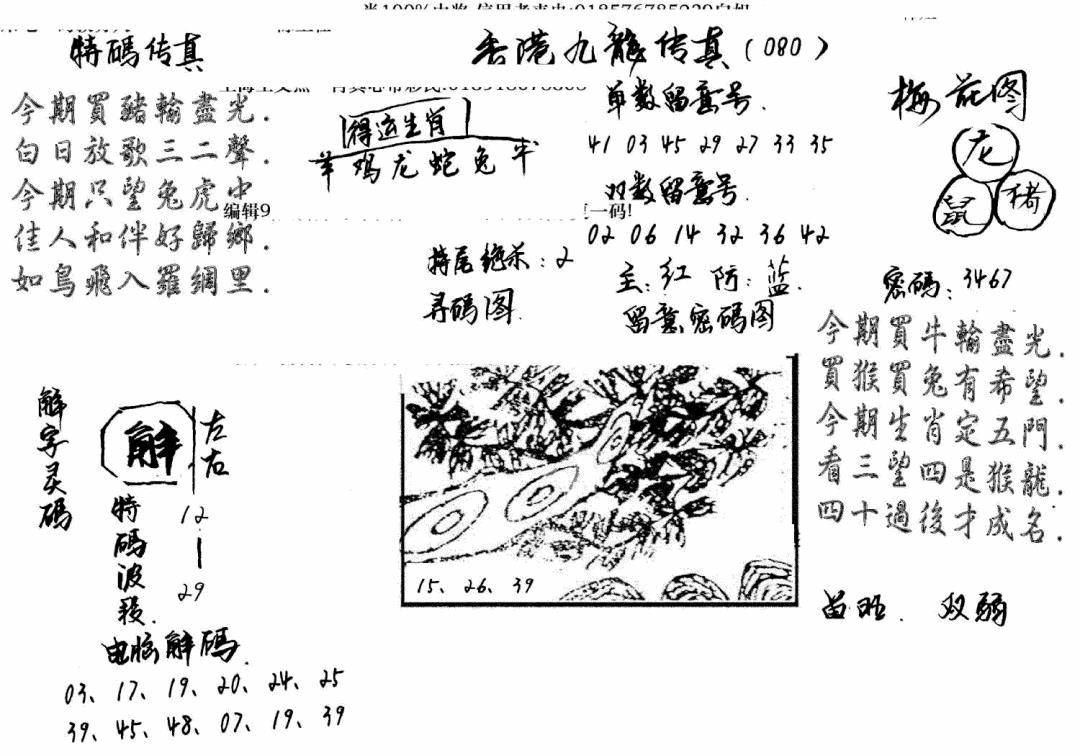 特碼传真
香港九龍传真(080)
今期買豬輸盡光.
白日放歌三二聲.
今期只望兔虎中
佳人和伴好歸鄉.
如鳥飛入羅綢里.
得运生肖
羊鸡龙蛇兔牛
编辑9
一码!
单数留意号.
41 03 45 29 27 33 35
双数留意号
02 06 14 32 36 42
主:红 防:蓝.
留意密码图
特尾绝杀:2
寻码图
梅花图
龙
鼠 猪
密码:3467
今期買牛輸盡光.
買猴買兔有希望.
今期生肖定五門.
看三望四是猴龍.
四十過後才成名.
双弱
解字灵码
解
左右
特碼波段.
12
29
15、26、39
电脑解碼.
03、17、19、20、24、25
39、45、48、07、19、39